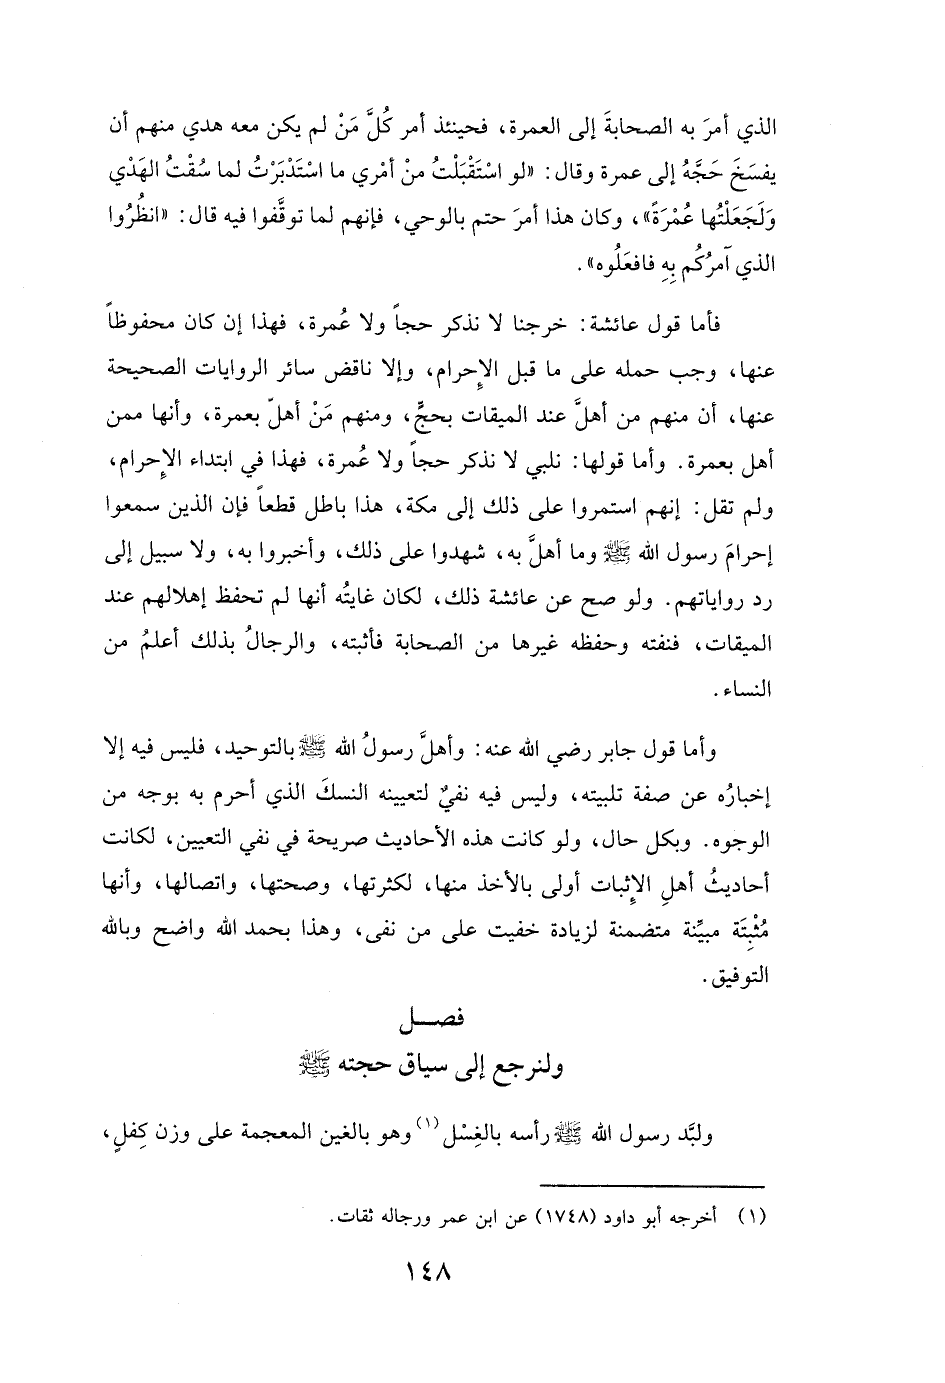 الذي أمرَ به الصحابةَ إلى العمرة، فحينئذ أمر كُلَّ مَنْ لم يكن معه هدي منهم أن
يفسَخَ حَجَّهُ إلى عمرة وقال: «لو اسْتَقْبَلْتُ منْ أمْري ما اسْتَدْبَرْتُ لما سُقْتُ الهَدْي
وَلَجَعَلْتُها عُمْرَةً»، وكان هذا أمرَ حتم بالوحي، فإنهم لما توقَّفوا فيه قال: «انظُرُوا
الذي آمرُكُم بِهِ فافعَلُوه».
فأما قول عائشة: خرجنا لا نذكر حجاً ولا عُمرة، فهذا إن كان محفوظاً
عنها، وجب حمله على ما قبل الإِحرام، وإلا ناقض سائر الروايات الصحيحة
عنها، أن منهم من أهلَّ عند الميقات بحجٍّ، ومنهم مَنْ أهلّ بعمرة، وأنها ممن
أهل بعمرة. وأما قولها: نلبي لا نذكر حجاً ولا عُمرة، فهذا في ابتداء الإِحرام،
ولم تقل: إنهم استمروا على ذلك إلى مكة، هذا باطل قطعاً فإن الذين سمعوا
إحرامَ رسول الله ﷺ وما أهلَّ به، شهدوا على ذلك، وأخبروا به، ولا سبيل إلى
رد رواياتهم. ولو صح عن عائشة ذلك، لكان غايتُه أنها لم تحفظ إهلالهم عند
الميقات، فنفته وحفظه غيرها من الصحابة فأثبته، والرجالُ بذلك أعلمُ من
النساء.
وأما قول جابر رضي الله عنه: وأهلَّ رسولُ الله ﷺ بالتوحيد، فليس فيه إلا
إخبارُه عن صفة تلبيته، وليس فيه نفيٌ لتعيينه النسكَ الذي أحرم به بوجه من
الوجوه. وبكل حال، ولو كانت هذه الأحاديث صريحة في نفي التعيين، لكانت
أحاديثُ أهلِ الإِثبات أولى بالأخذ منها، لكثرتها، وصحتها، واتصالها، وأنها
مُثْبِتَة مبيِّنة متضمنة لزيادة خفيت على من نفى، وهذا بحمد الله واضح وبالله
التوفيق.
فصــل
ولنرجع إلى سياق حجته ﷺ
ولبَّد رسول الله ﷺ رأسه بالغِسْل(١) وهو بالغين المعجمة على وزن كِفلٍ،
(١) أخرجه أبو داود (١٧٤٨) عن ابن عمر ورجاله ثقات.
١٤٨